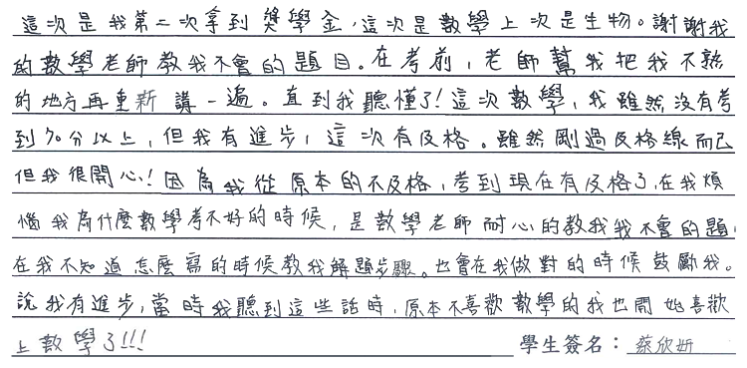 這次是我第二次拿到獎學金，這次是數學上次是生物。謝謝我
的數學老師教我不會的題目。在考前，老師幫我把我不熟
的地方再重新講一遍。直到我聽懂了!這次數學，我雖然沒有考
到70分以上，但我有進步，這次有及格。雖然剛過及格線而已
但我很開心!因為我從原本的不及格，考到現在有及格了，在我煩
惱我為什麼數學考不好的時候，是數學老師耐心的教我我不會的題，
在我不知道怎麼寫的時候教我解題步驟。也會在我做對的時候鼓勵我。
說我有進步，當時我聽到這些話時，原本不喜歡數學的我也開始喜歡
上數學了!!! 學生簽名：蔡欣妍